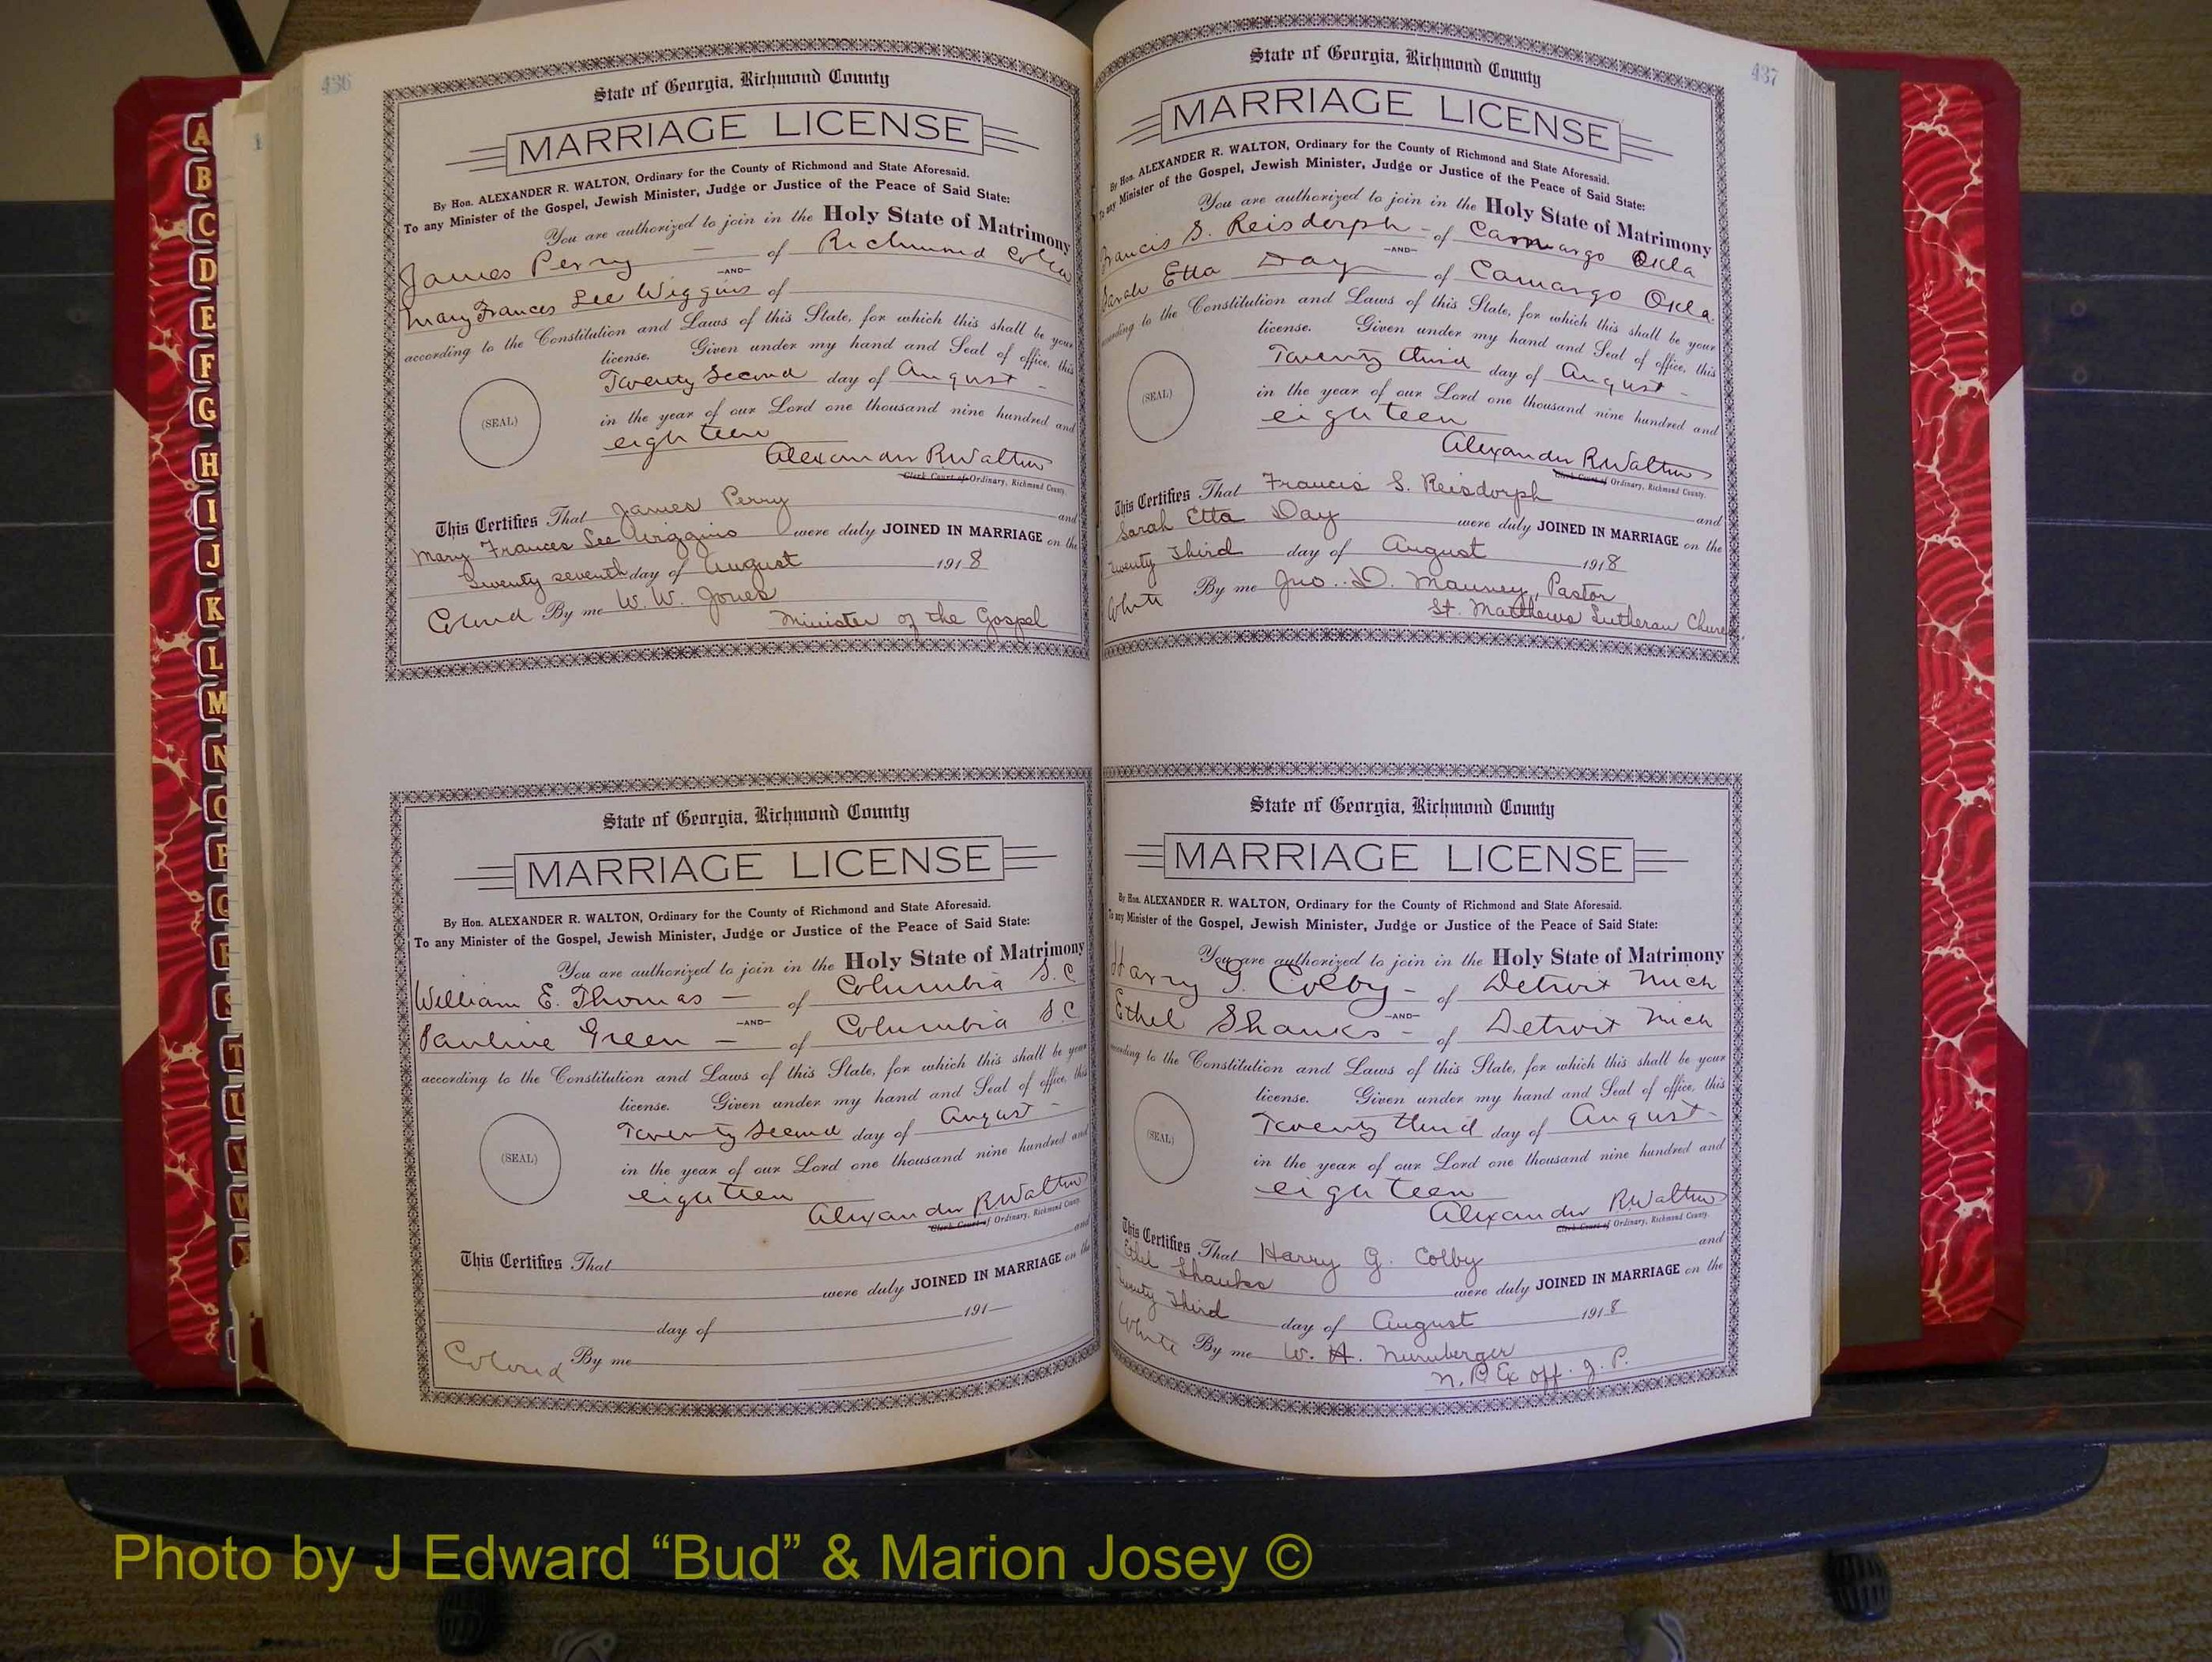 436
State of Georgia, Richmond County
MARRIAGE LICENSE
By Hon. ALEXANDER R. WALTON, Ordinary for the County of Richmond and State Aforesaid.
To any Minister of the Gospel, Jewish Minister, Judge or Justice of the Peace of Said State:
You are authorized to join in the Holy State of Matrimony
James Perry — of Richmond
—AND—
Mary Frances Lee Wiggins of
according to the Constitution and Laws of this State, for which this shall be your
license. Given under my hand and Seal of office, this
Twenty Second day of August -
(SEAL)
in the year of our Lord one thousand nine hundred and
eighteen
Alexander R. Walton
Clerk Court of Ordinary, Richmond County.
This Certifies That James Perry and
Mary Frances Lee Wiggins were duly JOINED IN MARRIAGE on the
Twenty seventh day of August 1918
Colored By me W. W. Jones
Minister of the Gospel
State of Georgia, Richmond County
MARRIAGE LICENSE
By Hon. ALEXANDER R. WALTON, Ordinary for the County of Richmond and State Aforesaid.
To any Minister of the Gospel, Jewish Minister, Judge or Justice of the Peace of Said State:
You are authorized to join in the Holy State of Matrimony
William E. Thomas — of Columbia S.C
—AND—
Pauline Green — of Columbia S.C
according to the Constitution and Laws of this State, for which this shall be your
license. Given under my hand and Seal of office, this
Twenty Second day of August -
(SEAL)
in the year of our Lord one thousand nine hundred and
eighteen
Alexander R. Walton
Clerk Court of Ordinary, Richmond County
This Certifies That and
were duly JOINED IN MARRIAGE on the
day of 191
Colored By me
437
State of Georgia, Richmond County
MARRIAGE LICENSE
By Hon. ALEXANDER R. WALTON, Ordinary for the County of Richmond and State Aforesaid.
To any Minister of the Gospel, Jewish Minister, Judge or Justice of the Peace of Said State:
You are authorized to join in the Holy State of Matrimony
Francis S. Reisdorph - of Camargo Okla
—AND—
Sarah Etta Day of Camargo Okla
according to the Constitution and Laws of this State, for which this shall be your
license. Given under my hand and Seal of office, this
Twenty third day of August -
(SEAL)
in the year of our Lord one thousand nine hundred and
eighteen
Alexander R. Walton
Clerk Court of Ordinary, Richmond County.
This Certifies That Francis S. Reisdorph and
Sarah Etta Day were duly JOINED IN MARRIAGE on the
Twenty Third day of August 1918
White By me Jno. D. Mauney, Pastor
St. Matthews Lutheran Church
State of Georgia, Richmond County
MARRIAGE LICENSE
By Hon. ALEXANDER R. WALTON, Ordinary for the County of Richmond and State Aforesaid.
To any Minister of the Gospel, Jewish Minister, Judge or Justice of the Peace of Said State:
You are authorized to join in the Holy State of Matrimony
Harry G. Colby - of Detroit Mich
—AND—
Ethel Shanks - of Detroit Mich
according to the Constitution and Laws of this State, for which this shall be your
license. Given under my hand and Seal of office, this
Twenty third day of August -
(SEAL)
in the year of our Lord one thousand nine hundred and
eighteen
Alexander R. Walton
Clerk Court of Ordinary, Richmond County.
This Certifies That Harry G. Colby and
Ethel Shanks were duly JOINED IN MARRIAGE on the
Twenty Third day of August 1918
White By me W. H. Nurnberger
N. P. Ex off. J. P.
A
B
C
D
E
F
G
H
I
J
K
L
M
N
O
P
Q
R
S
T
U
V
W
Photo by J Edward “Bud” & Marion Josey ©